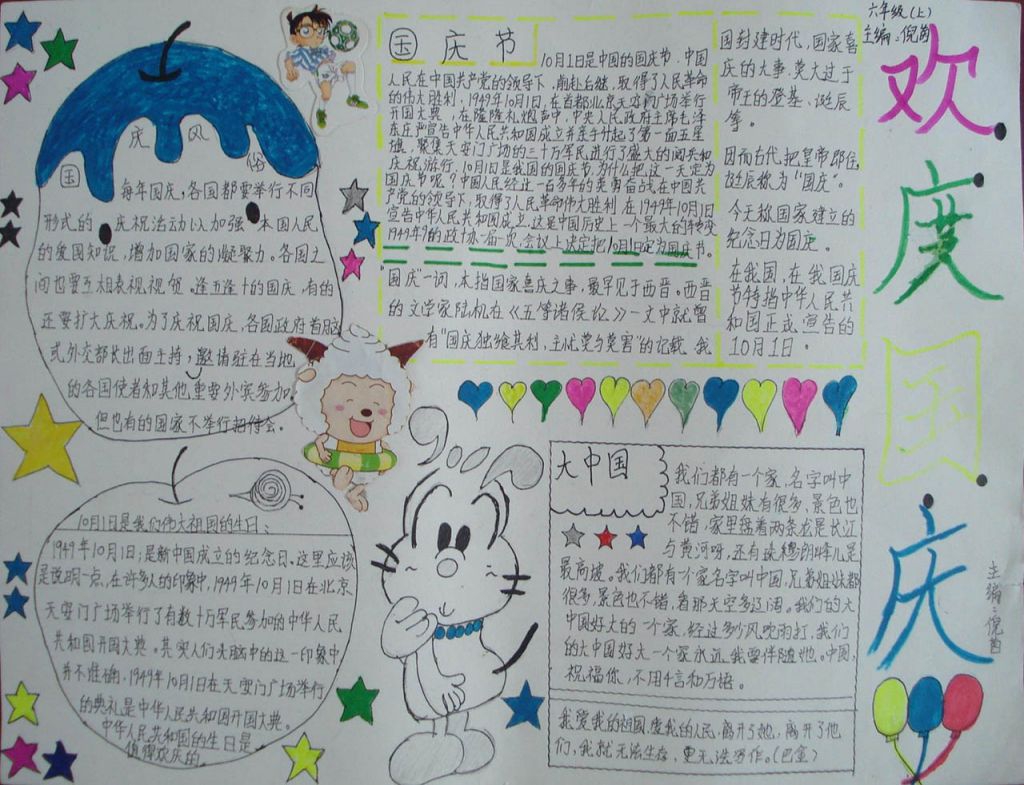 六年级(上)
主编:倪茵
欢
度
国
庆
主编:倪茵
国庆节
10月1日是中国的国庆节.中国
人民在中国共产党的领导下,前赴后继,取得了人民革命
的伟大胜利,1949年10月1日,在首都北京天安门广场举行
开国大典,在隆隆礼炮声中,中央人民政府主席毛泽
东庄严宣告中华人民共和国成立并亲手升起了第一面五星
旗,聚集天安门广场的三十万军民进行了盛大的阅兵和
庆祝游行,10月1日是我国的国庆节.为什么把这一天定为
国庆节呢?中国人民经过一百多年的英勇奋战,在中国共
产党的领导下,取得了人民革命伟大胜利在1949年10月1日
宣告中华人民共和国成立.这是中国历史上一个最大的转变
国庆"一词,本指国家喜庆之事,最早见于西晋。西晋
的文学家陆机在《五等诸侯论》一文中就曾
有"国庆独飨其利,主忧莫与其害"的记载.我
国封建时代,国家喜
庆的大事,莫大过于
帝王的登基、诞辰
等。
因而古代把皇帝即位
诞辰称为"国庆"。
今天称国家建立的
纪念日为国庆。
在我国,在我国庆
节特指中华人民共
和国正式宣告的
10月1日。
国庆风俗
每年国庆,各国都要举行不同
形式的庆祝活动以加强本国人民
的爱国知识,增加国家的凝聚力。各国之
间也要互相表视视贺。逢五逢十的国庆,有的
还要扩大庆祝。为了庆祝国庆,各国政府首脑
或外交部长出面主持,邀请驻在当地
的各国使者和其他重要外宾参加
但也有的国家不举行招待会。
10月1日是我们伟大祖国的生日:
1949年10月1日;是新中国成立的纪念日、这里应该
是说明一点,在许多人的印象中,1949年10月1日在北京
天安门广场举行了有数十万军民参加的中华人民
共和国开国大典。其实人们头脑中的这一印象中
并不准确,1949年10月1日在天安门广场举行
的典礼是中华人民共和国开国大典。
中华人民共和国的生日是
值得欢庆的。
大中国
我们都有一个家,名字叫中
国,兄弟姐妹有很多,景色也
不错,家里盘着两条龙是长江
与黄河呀,还有珠穆朗峰儿是
最高坡。我们都有一个家名字叫中国,兄弟姐妹都
很多,景色也不错,看那天空多辽阔。我们的大
中国好大的一个家,经过多少风吹雨打,我们
的大中国好大一个家永远,我要伴随她。中国,
祝福你,不用千言和万语。
我爱我的祖国,爱我的人民,离开了她,离开了他
们,我就无法生存,更无法写作。(巴金)